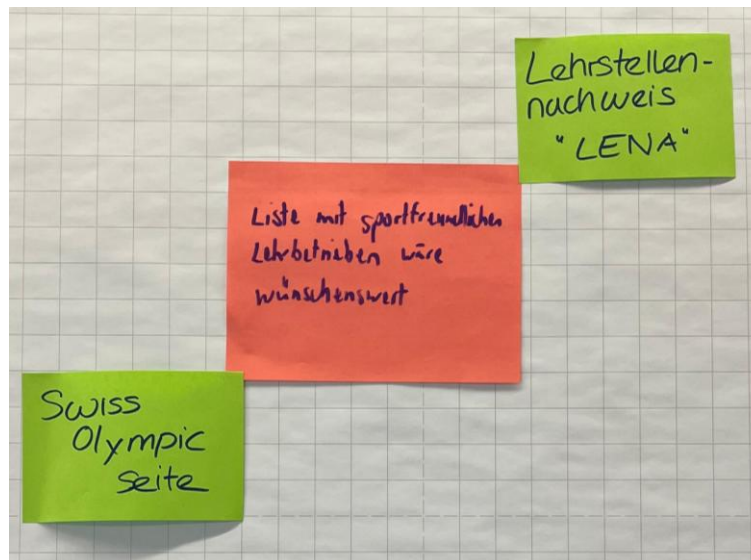 Lehrstellen-
nachweis
"LENA"
Liste mit sportfreundlichen
Lehrbetrieben wäre
wünschenswert
Swiss
Olympic
Seite